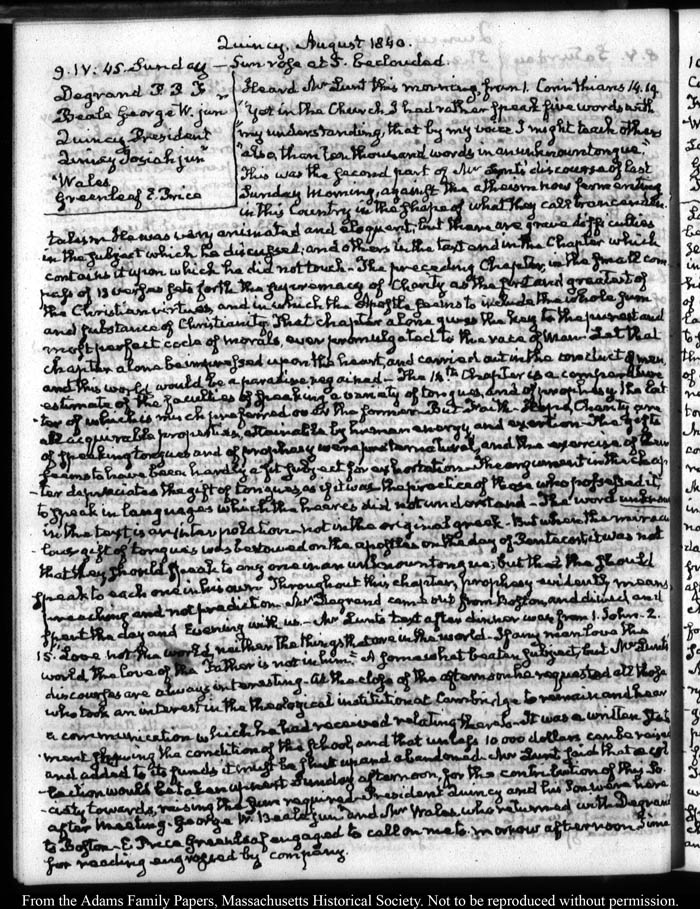 Quincy, August 1840.
9. IV: 45. Sunday — Sun rose at 5. beclouded.
Degrand P. P. F.
Beale George W. junr
Quincy President
Quincy Josiah junr
Wales
Greenleaf E. Price
Heard Mr Lunt this morning from 1. Corinthians 14. 19
"Yet in the Church I had rather speak five words with
"my understanding, that by my voice I might teach others
"also, than ten thousand words in an unknown tongue."
This was the second part of Mr Lunt's discourse of last
Sunday Morning, against the atheism now fermenting
in this Country in the shape of what they call transcenden-
talism. He was very animated and eloquent; but there are grave difficulties
in the subject which he discussed; and others in the text and in the Chapter which
contains it upon which he did not touch. The preceding Chapter, in the small com-
pass of 13 verses sets forth the supremacy of Charity as the first and greatest of
the Christian virtues, and in which the apostle seems to include the whole sum
and substance of Christianity. That chapter alone gives the key to the purest and
most perfect code of morals, ever promulgated to the race of Man. Let that
chapter alone be impressed upon the heart, and carried out in the conduct of men,
and this world would be a paradise regained — The 14th Chapter is a comparative
estimate of the faculties of speaking a variety of tongues, and of prophesy, the lat-
ter of which is much preferred over the former. But Faith, Hope, Charity are
all acquirable properties, attainable by human energy and exertion. The gifts
of speaking tongues and of prophesy were preternatural, and the exercise of them
seems to have been hardly a fit subject for exhortation. The argument in the chap-
ter depreciates the gift of tongues, as if it was the practice of those who possessed it,
to speak in languages which the hearers did not understand — The word unknown
in the text is an interpolation not in the original greek. But when the miracu-
lous gift of tongues was bestowed on the apostles on the day of Pentecost, it was not
that they should speak to any one in an unknown tongue; but that the should
speak to each one in his own. Throughout this chapter, prophesy evidently means,
preaching and not prediction. Mr Degrand came out from Boston, and dined and
spent the day and Evening with us — Mr Lunt's text after dinner was from 1. John. 2.
15. "Love not the world, neither the things that are in the world. If any man love the
world the love of the Father is not in him." A somewhat beaten subject but Mr Lunt's
discourses are always interesting. At the close of the afternoon he requested all those
who took an interest in the theological institution at Cambridge to remain and hear
a communication which he had received relating thereto. It was a written State-
ment shewing the condition of the School, and that unless 10 000 dollars can be raised
and added to its funds it must be shut up and abandoned. Mr Lunt said that a col-
lection would be taken up next Sunday afternoon, for the contribution of this So-
ciety towards, raising the sum required. President Quincy and his Son were here
after Meeting. George W. Beale jun. and Mr Wales, who returned with Degrand
to Boston. E. Price Greenleaf engaged to call on me to morrow afternoon. Time
for reading engrossed by company.
From the Adams Family Papers, Massachusetts Historical Society. Not to be reproduced without permission.